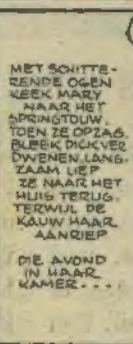 MET SCHITTE-
RENDE OGEN
KEEK MARY
NAAR HET
SPRINGTOUW.
TOEN ZE OPZAG
BLEEK DICK VER
DWENEN. LANG-
ZAAM LIEP
ZE NAAR HET
HUIS TERUG.
TERWIJL DE
KAUW HAAR
AANRIEP
DIE AVOND
IN HAAR
KAMER....